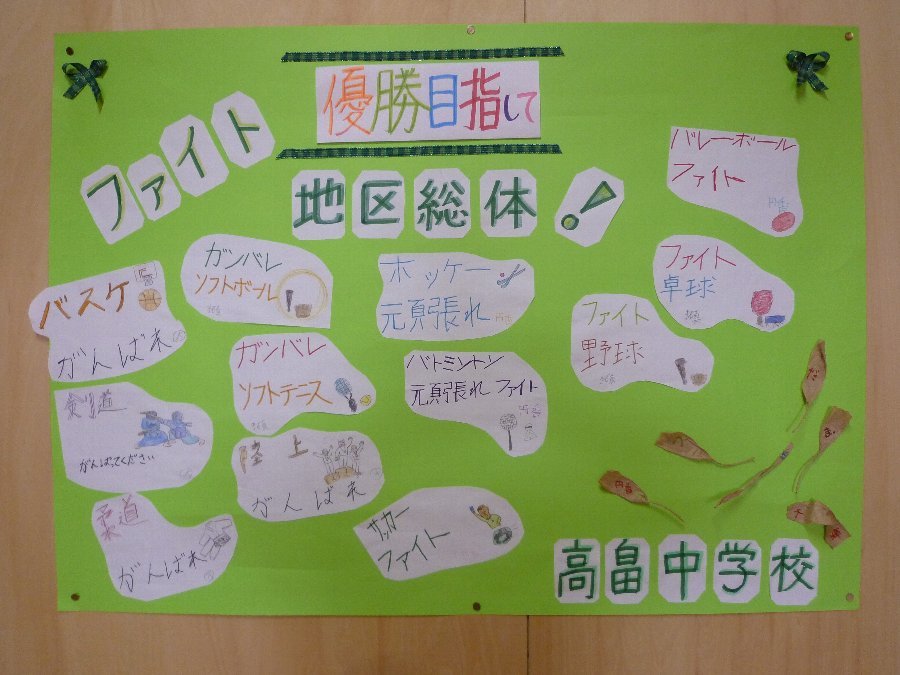 優勝目指して
ファイト
地区総体!
バレーボール
ファイト
ガンバレ
ソフトボール
ホッケー
元気頑張れ
ファイト
卓球
バスケ
がんばれ
ガンバレ
ソフトテニース
バトミントン
頑張れ ファイト
ファイト
野球
剣道
がんばってください
陸上
がんばれ
柔道
がんばれ
サッカー
ファイト
高畠中学校